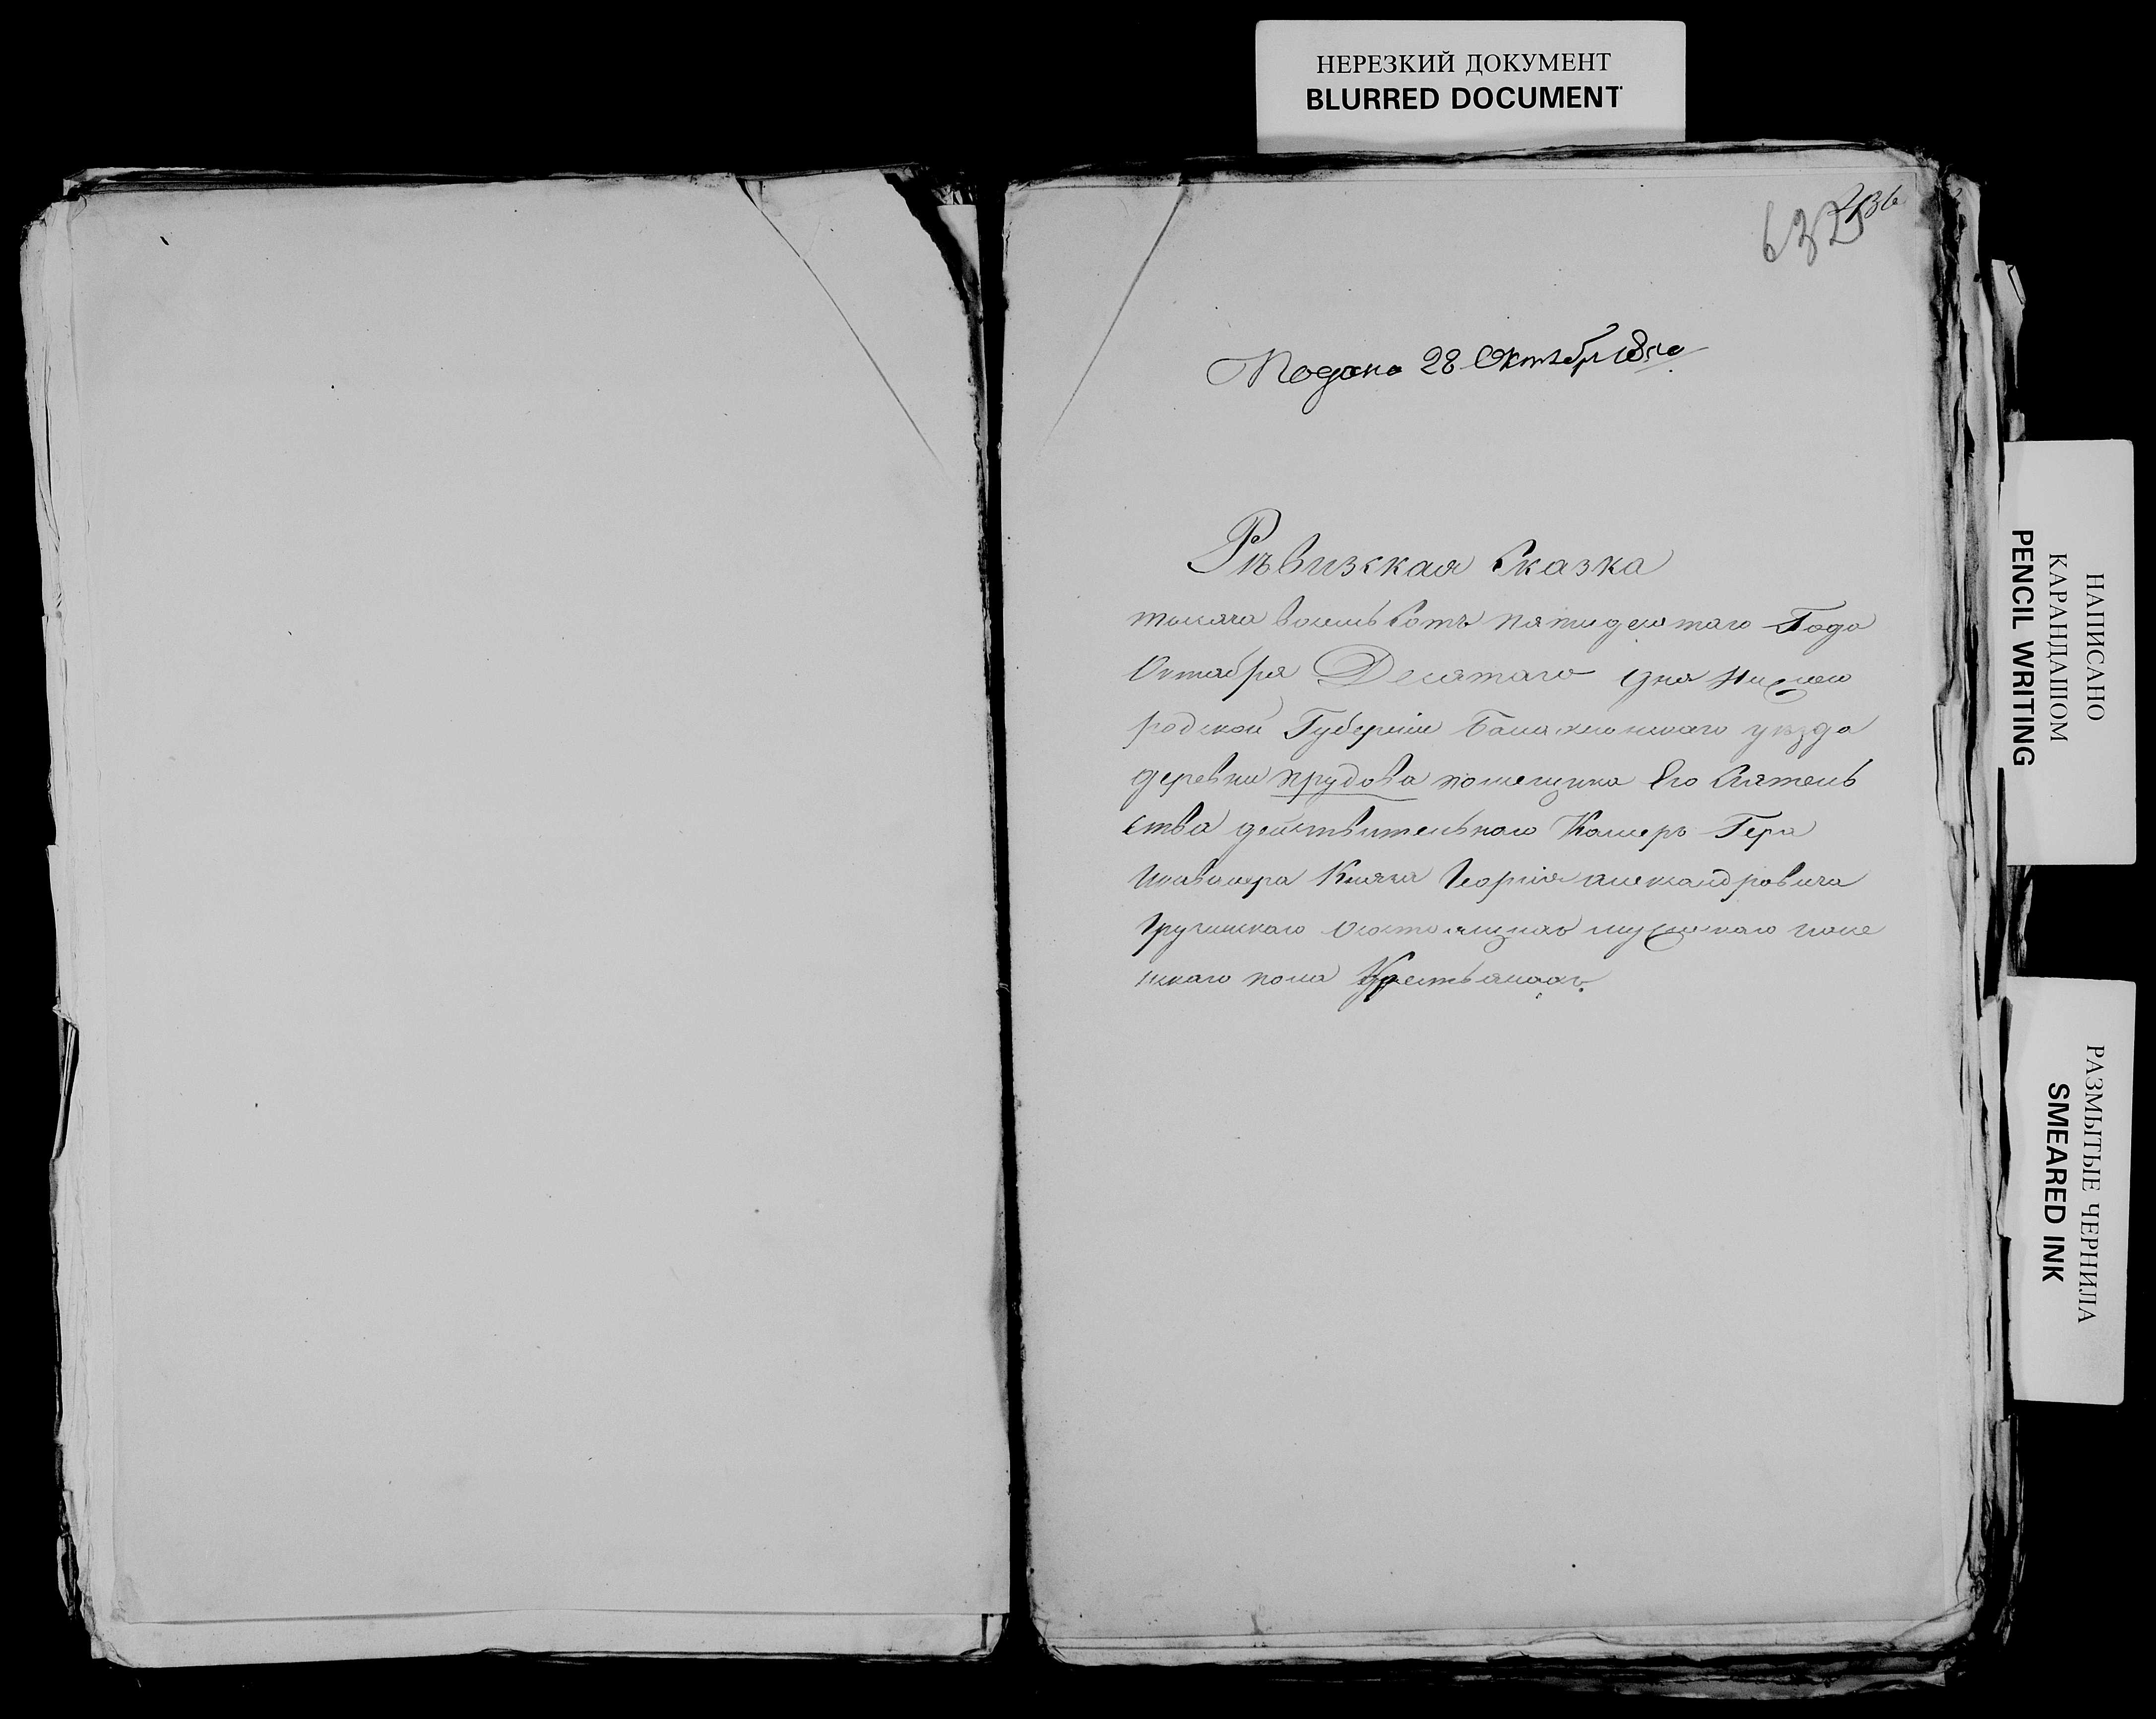 НЕРЕЗКИЙ ДОКУМЕНТ
BLURRED DOCUMENT
632
Подано 28 Октября 1850
Ръвизская Сказка
тысяча восемь Сотъ пятидесятаго Года
Октября Десятаго дня Нижего
родской Губерніи Балахнонскаго уезда
деревни прудова помещика Его Сіятель
ства действительнаго Камеръ Гера
икавалера Князя Георгія александровича
Грузинскаго Осостоящихъ мужескаго ижене
нскаго пола Крестьянахъ
НАПИСАНО
КАРАНДАШОМ
PENCIL WRITING
РАЗМЫТЫЕ ЧЕРНИЛА
SMEARED INK